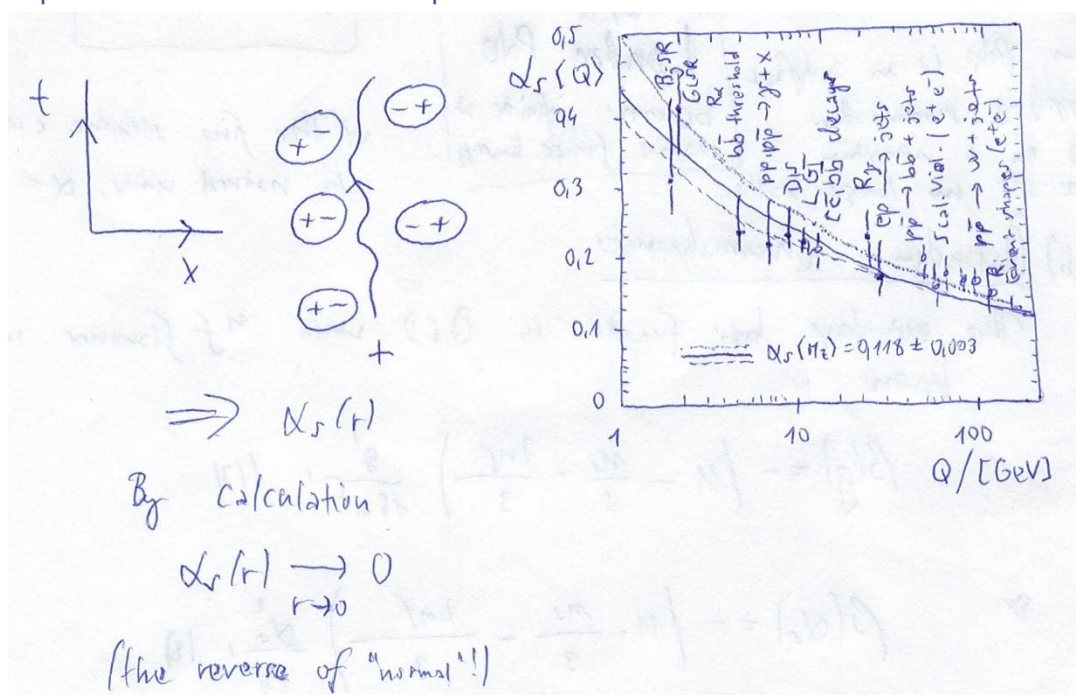 t
x
- +
+ -
+ -
- +
+ -
+
⟹ αs(r)
By Calculation
αs(r) → 0
r→0
(the reverse of "normal"!)
αs(Q)
0,5
0,4
0,3
0,2
0,1
0
1
10
100
Q/[GeV]
BjSR
GLSR
bb̄ threshold
pp,pp̄ → γ + x
DIS
decays
pp̄ → 2 jets
pp̄ → bb̄ + jets
scal. viol. (e⁺e⁻)
pp̄ → W + jets
Event shapes (e⁺e⁻)
αs(Mz) = 0,118 ± 0,003